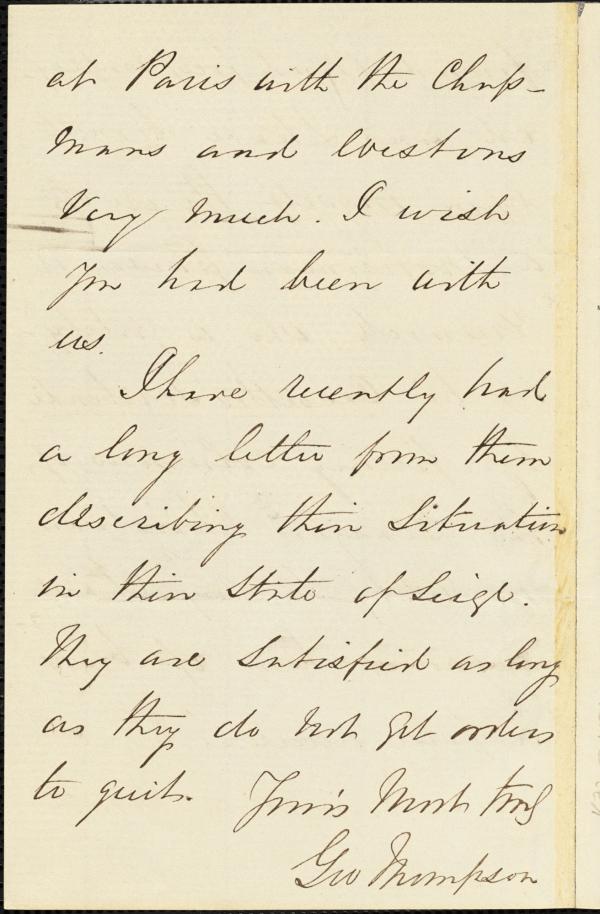 at Paris with the Chap-
mans and Westons
Very much. I wish
you had been with
us.
I have recently had
a long letter from them
describing their Situation
in their State of Seige.
They are Satisfied as long
as they do not get orders
to quit. Your's Most truly
Geo Thompson